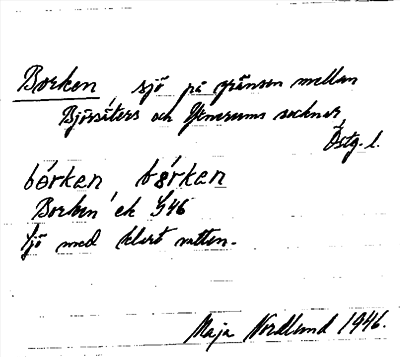 Borken, sjö på gränsen mellan
Björsäters och Yxnerums socknar,
Östg. l.
bórken bórken
Borken ek S46
Sjö med klart vatten.
Maja Nordlund 1946.